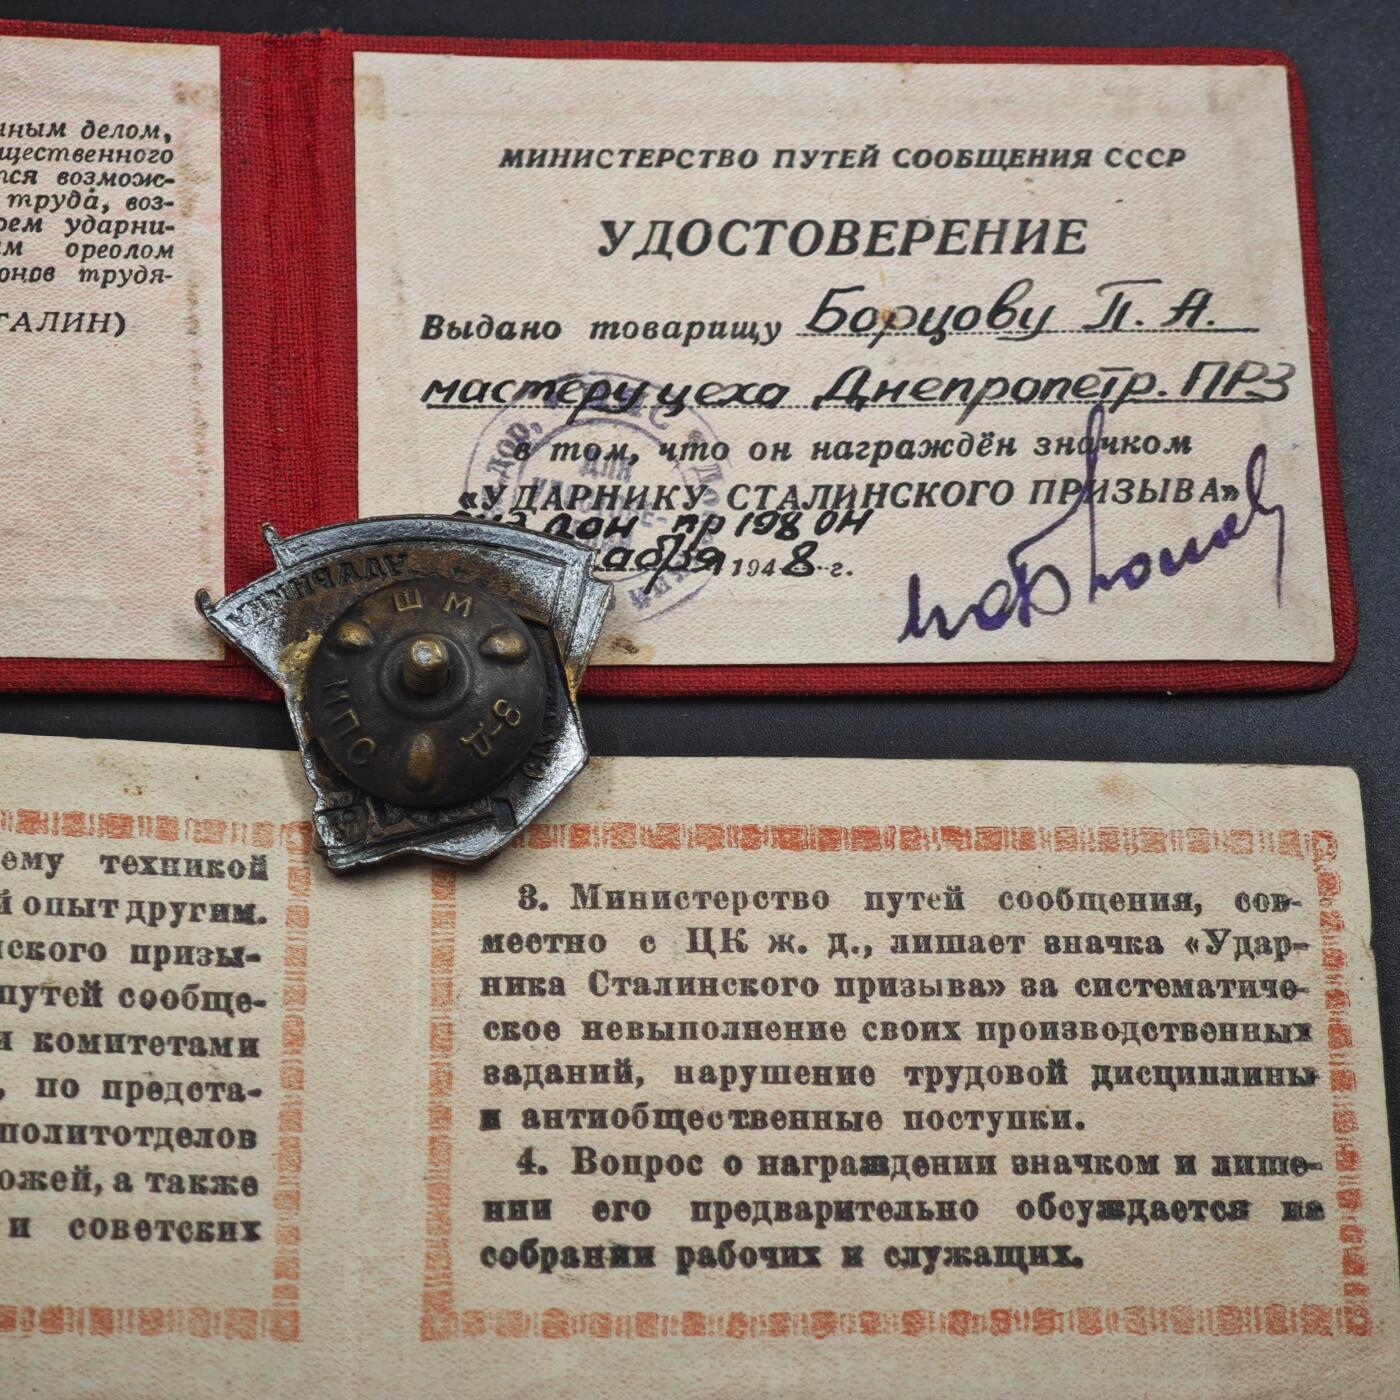 делом,
труда, воз-
ореолом
трудя-
МИНИСТЕРСТВО ПУТЕЙ СООБЩЕНИЯ СССР
УДОСТОВЕРЕНИЕ
Выдано товарищу Борцову П. А.
мастеру цеха Днепропетр. ПРЗ
в том, что он награждён значком
«УДАРНИКУ СТАЛИНСКОГО ПРИЗЫВА»
пр 198 ОН
1948 г.
Ш М
З-Д
МПС
техникой
опыт другим.
призы-
путей сообще-
комитетами
по предста-
политотделов
а также
и советских
3. Министерство путей сообщения, сов-
местно с ЦК ж. д., лишает значка «Удар-
ника Сталинского призыва» за системати­че-
ское невыполнение своих производственных
заданий, нарушение трудовой дисциплины
и антиобщественные поступки.
4. Вопрос о награждении значком и лише-
нии его предварительно обсуждается на
собрании рабочих и служащих.